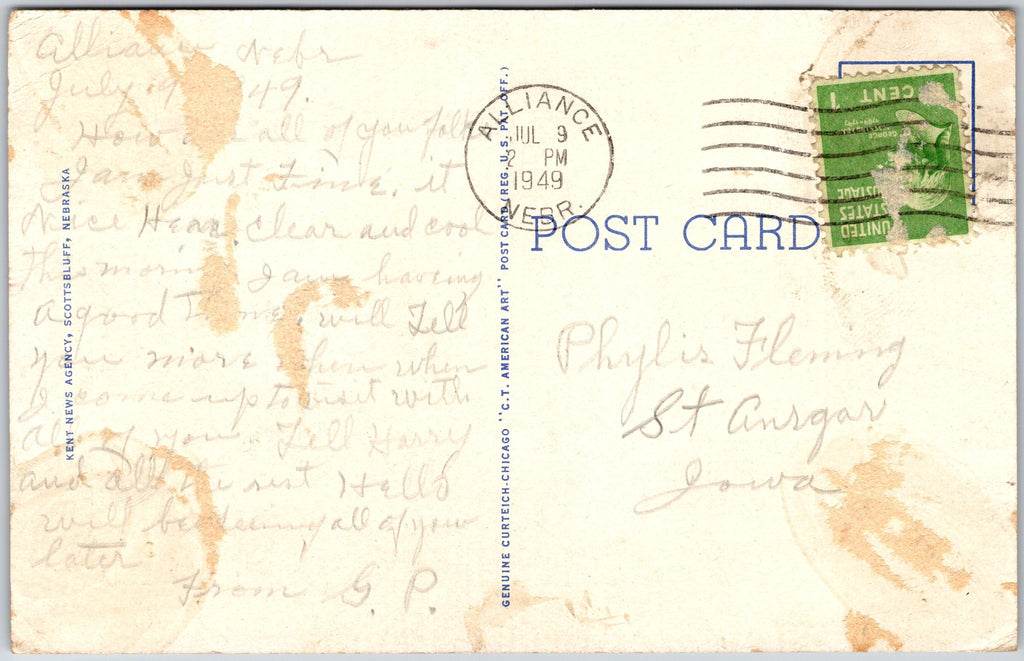 Alliance Nebr
July 9 49.
How all of you folk
I am Just Fine, it
Nice Hear, clear and cool
This morning I am having
a good Time. will Tell
you more when
I come up to visit with
all of you Tell Harry
and all the rest Hello
will be seeing all of you
later
From G. P.
KENT NEWS AGENCY, SCOTTSBLUFF, NEBRASKA
GENUINE CURTEICH-CHICAGO "C.T. AMERICAN ART" POST CARD (REG. U.S. PAT. OFF.)
ALLIANCE
JUL 9
2 PM
1949
NEBR.
POST CARD
1 CENT
GEORGE
UNITED
STATES
POSTAGE
Phylis Fleming
St Ansgar
Iowa